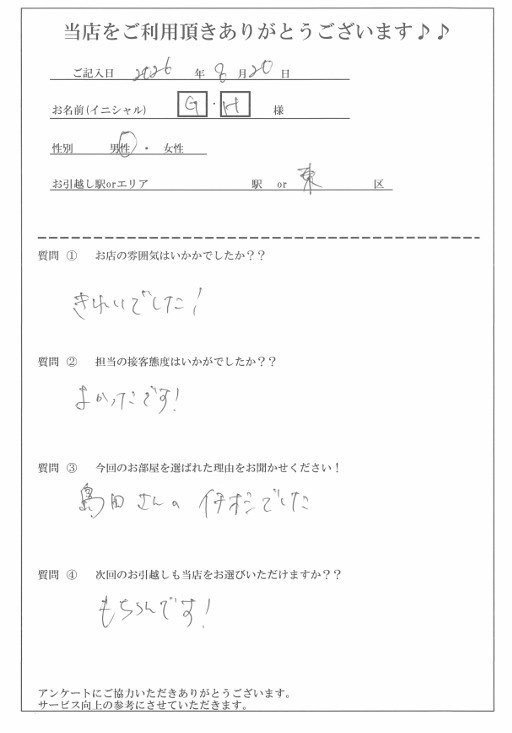 当店をご利用頂きありがとうございます♪♪
ご記入日 2026 年 8 月 20 日
お名前(イニシャル) G・H 様
性別 男性・女性
お引越し駅orエリア 駅 or 東 区
質問 ① お店の雰囲気はいかかでしたか??
きれいでした!
質問 ② 担当の接客態度はいかがでしたか??
よかったです!
質問 ③ 今回のお部屋を選ばれた理由をお聞かせください!
島田さんのイチオシでした
質問 ④ 次回のお引越しも当店をお選びいただけますか??
もちろんです!
アンケートにご協力いただきありがとうございます。
サービス向上の参考にさせていただきます。